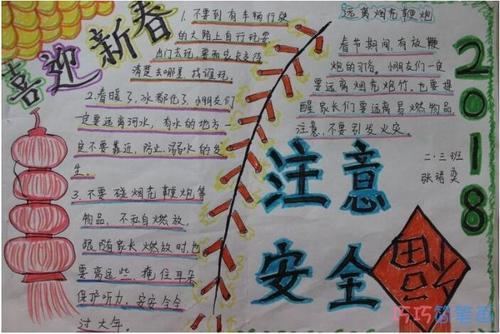 喜迎新春
1.不要到有车辆行驶
的大路上自行玩耍
出门去玩,要向家长交待
清楚去哪里,找谁玩。
2.春暖了,冰都化了,小朋友们
一定要远离河水,有水的地方一
定不要靠近,防止溺水的发
生。
3.不要碰烟花鞭炮等
物品,不私自燃放,
跟随家长燃放时,也
要离远些,捂住耳朵
保护听力,安安全全
过大年。
注意
安全
远离烟花鞭炮
春节期间,有放鞭
炮的习俗。小朋友们一定
要远离烟花炮竹,也要提
醒家长们要远离易燃物品
注意,不要引发火灾。
二·三班
2018
福